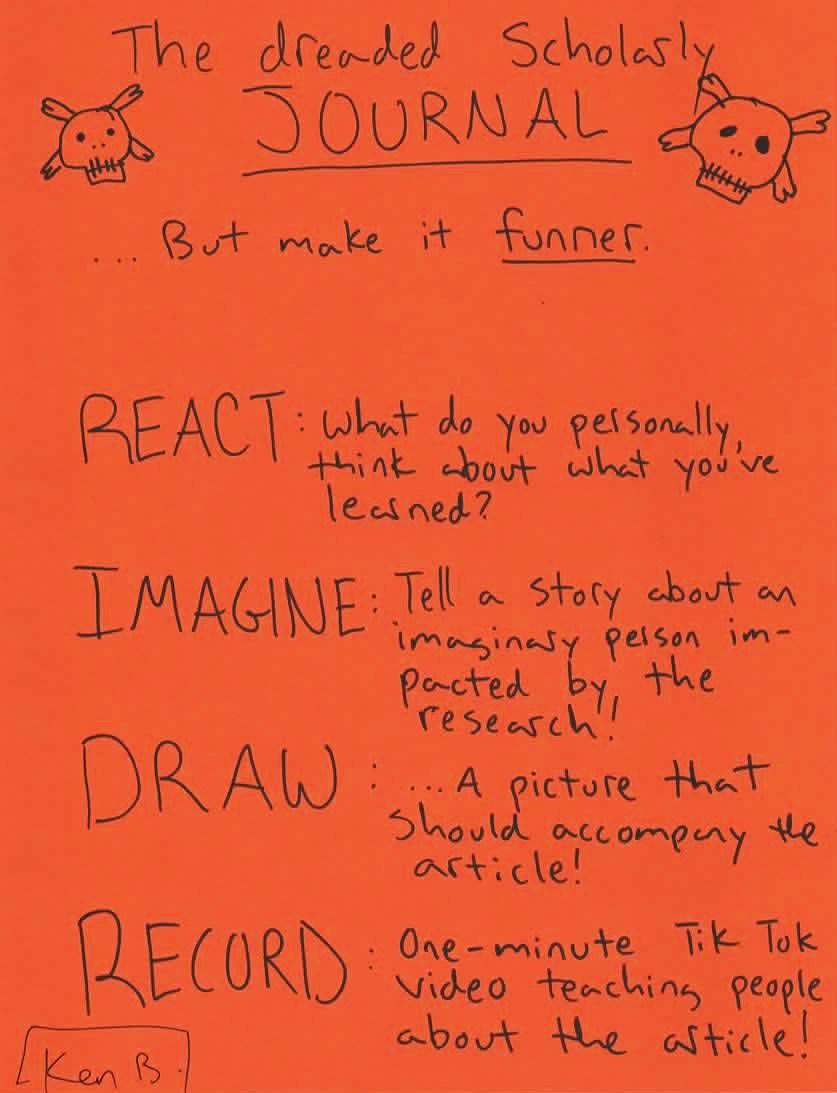 The dreaded Scholarly
JOURNAL
.... But make it funner.
REACT: What do you personally
think about what you've
learned?
IMAGINE: Tell a story about an
imaginary person im-
pacted by the
research!
DRAW: ... A picture that
should accompany the
article!
RECORD: One-minute Tik Tok
video teaching people
about the article!
Ken B.